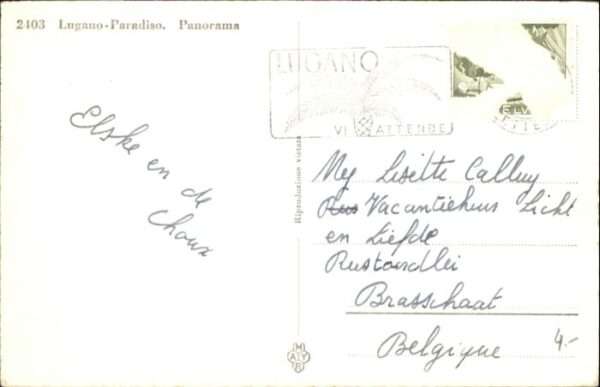 2403 Lugano-Paradiso. Panorama
LUGANO
VI ATTENDE
HELV
Elske en de
Choux
Riproduzione vietata
Mej Lisette Calluy
Vacantiehuis Licht
en Liefde
Rustoordlei
Brasschaat
Belgique
4.-